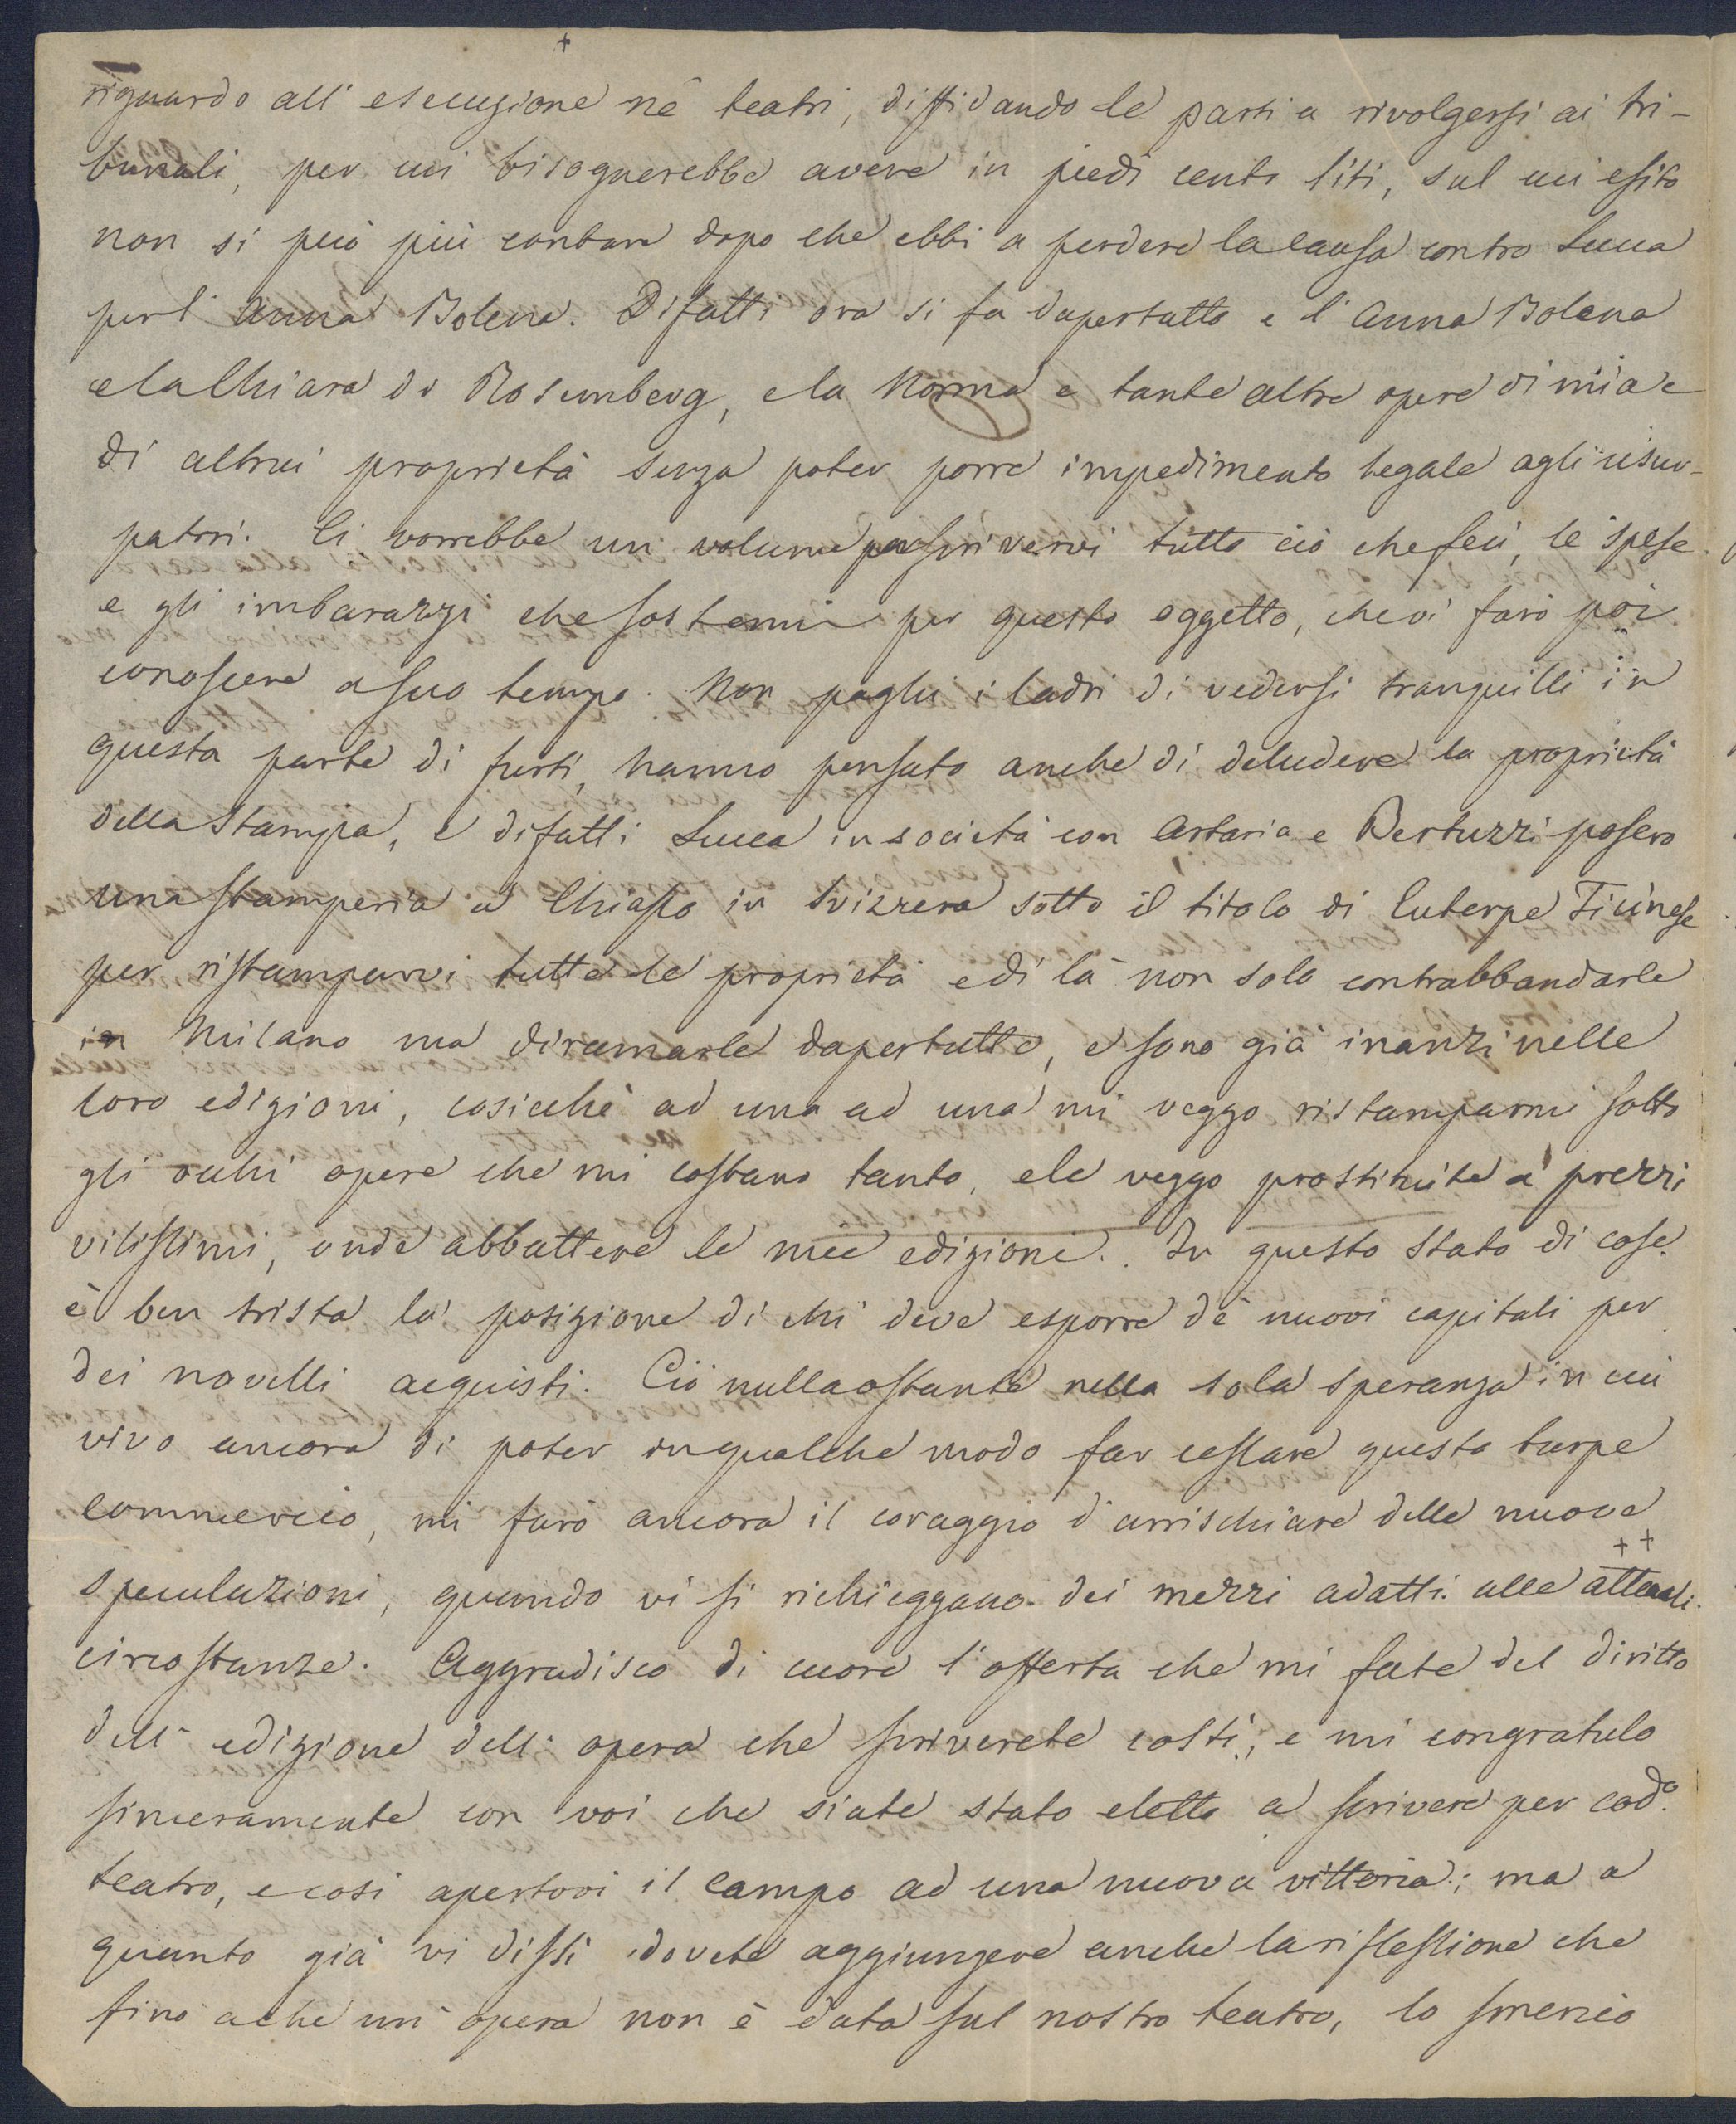 +
riguardo all'esecuzione nè teatri, diffidando le parti a rivolgersi ai tri-
bunali, per cui bisognerebbe avere in piedi cento liti, sul cui esito
non si può più contare dopo che ebbi a perdere la causa contro Lucca
per l'Anna Bolena. Difatti ora si fa dapertutto e l'Anna Bolena
e la Chiara di Rosemberg, e la Norma e tante altre opere di mia e
di altrui proprietà senza poter porre impedimento legale agli usur-
patori. Ci vorrebbe un volume per scrivervi tutto ciò che feci, le spese
e gli imbarazzi che sostenni per questo oggetto, che vi farò poi
conoscere a suo tempo. Non paghi i ladri di vedersi tranquilli in
questa parte di furti, hanno pensato anche di deludere la proprietà
della stampa, e difatti Lucca in società con Artaria e Bertuzzi posero
una stamperia a Chiasso in Svizzera sotto il titolo di Euterpe Ticinese
per ristamparvi tutte le proprietà e di là non solo contrabbandarle
in Milano ma diramarle dapertutto, e sono già inanzi nelle
loro edizioni, cosicchè ad una ad una mi veggo ristamparmi sotto
gli occhi opere che mi costano tanto, e le veggo prostituite a' prezzi
vilissimi, onde abbattere le mie edizioni. In questo stato di cose
è ben trista la posizione di chi deve esporre de' nuovi capitali per
dei novelli acquisti. Ciò nullaostante nella sola speranza in cui
vivo ancora di poter in qualche modo far cessare questo turpe
commercio, mi farò ancora il coraggio d'arrischiare delle nuove
speculazioni, quando vi si richieggano dei mezzi adatti alle attuali
++
circostanze. Aggradisco di cuore l'offerta che mi fate del diritto
dell'edizione dell'opera che scriverete costì, e mi congratulo
sinceramente con voi che siate stato eletto a scrivere per cod.o
teatro, e così apertovi il campo ad una nuova vittoria; ma a
quanto già vi dissi dovete aggiungere anche la riflessione che
fino a che un'opera non è data sul nostro teatro, lo smercio